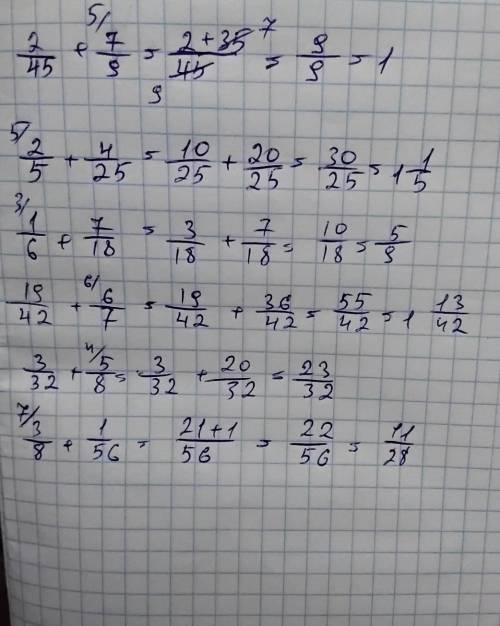 2/45 + 5/ 7/9 = 2+35/45 7 9 = 9/9 = 1
5/ 2/5 + 4/25 = 10/25 + 20/25 = 30/25 = 1 1/5
3/ 1/6 + 7/18 = 3/18 + 7/18 = 10/18 = 5/9
19/42 + 6/ 6/7 = 19/42 + 36/42 = 55/42 = 1 13/42
3/32 + 4/ 5/8 = 3/32 + 20/32 = 23/32
7/ 3/8 + 1/56 = 21+1/56 = 22/56 = 11/28